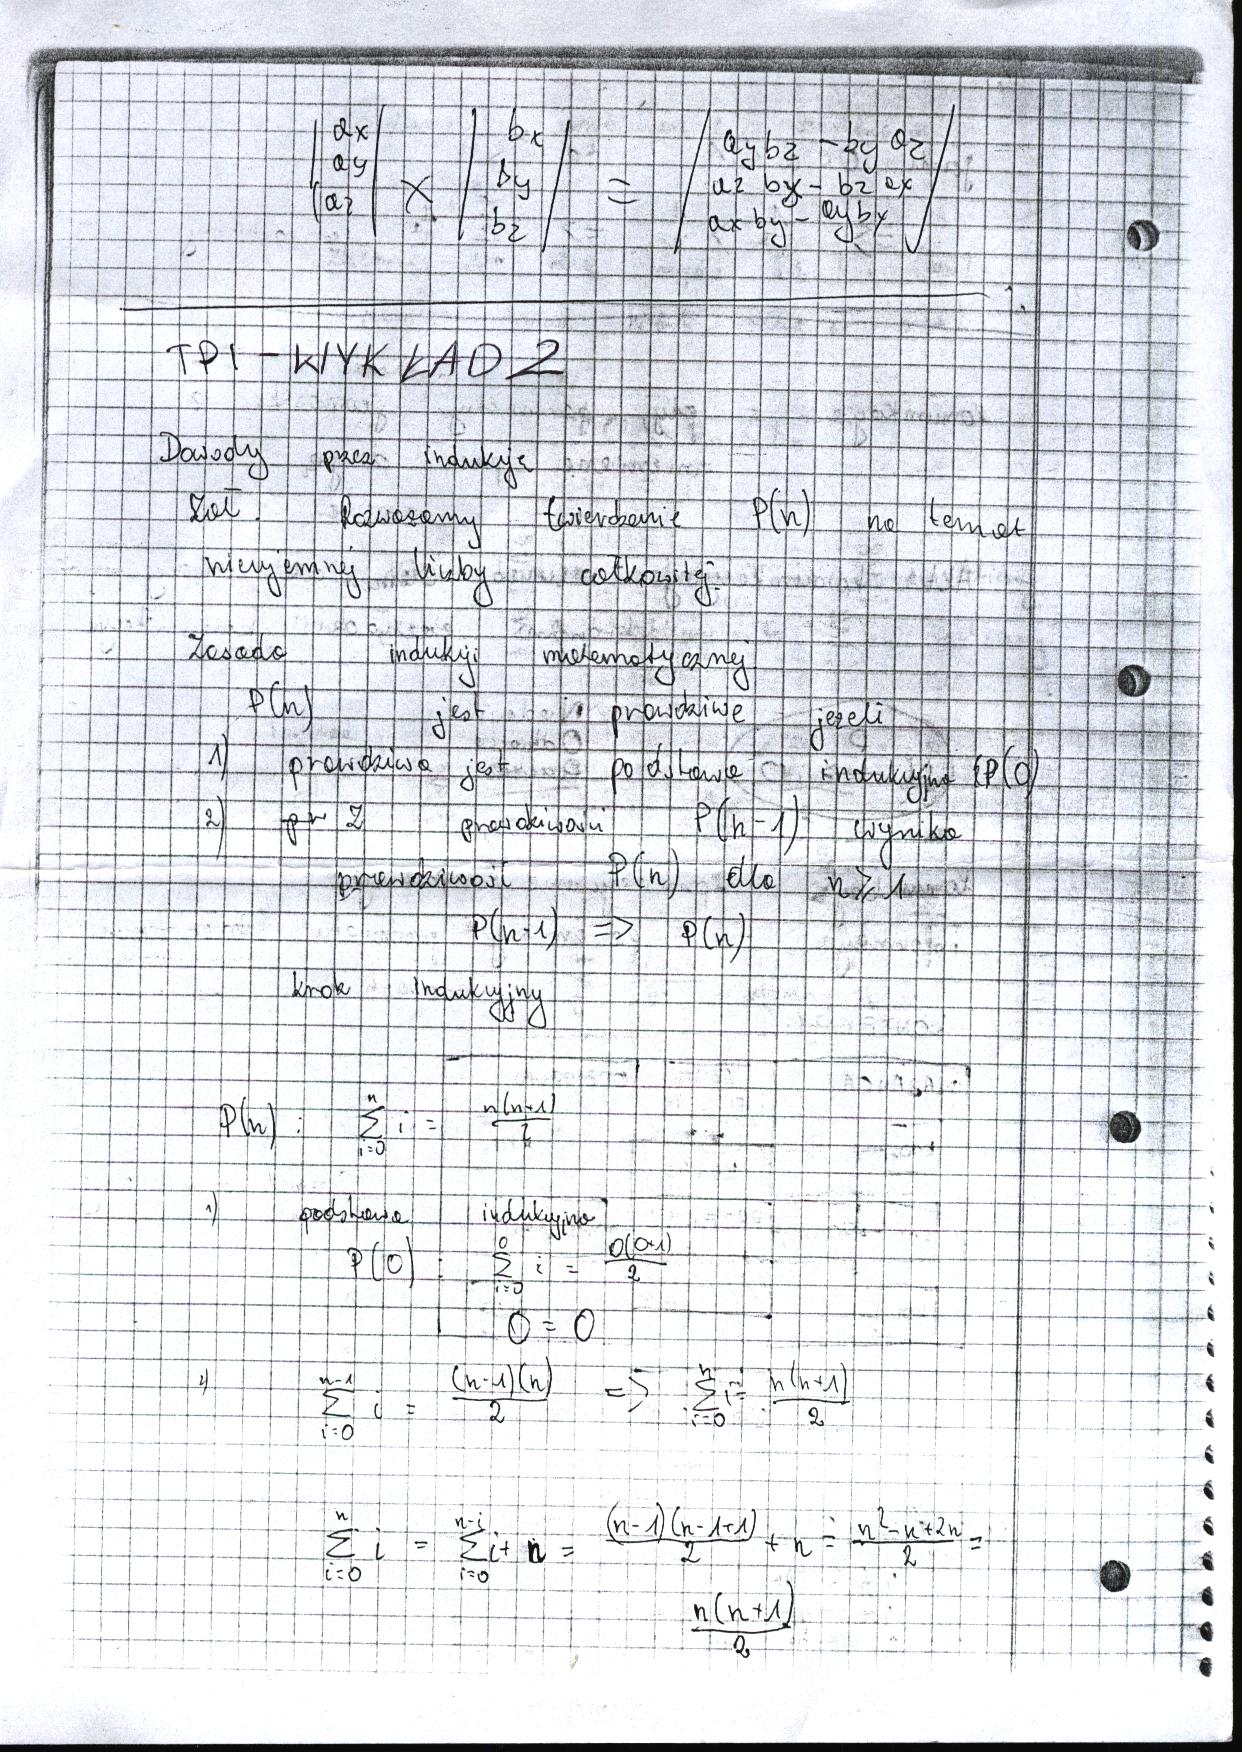 |ax| × |bx| = |aybz - byaz|
|ay| |by| |az bx - bz ax|
|az| |bz| |axby - aybx|
TPI - WYKŁAD 2
Dowody przez indukcję
Zał. Rozważamy twierdzenie P(n) na temat
nieujemnej liczby całkowitej.
Zasada indukcji matematycznej
P(n) jest prawdziwe jeżeli
1) prawdziwa jest podstawa indukcyjna (P(0)
2) Z prawdziwości P(n-1) wynika
prawdziwość P(n) dla n ≥ 1
P(n-1) => P(n)
krok indukcyjny
P(n) : ∑_{i=0}^{n} i = n(n+1)/2
1) podstawa indukcyjna
P(0) : ∑_{i=0}^{0} i = 0(0+1)/2
0 = 0
2) ∑_{i=0}^{n-1} i = (n-1)(n)/2 => ∑_{i=0}^{n} i = n(n+1)/2
∑_{i=0}^{n} i = ∑_{i=0}^{n-1} i + n = (n-1)(n-1+1)/2 + n = n²-n+2n/2 =
n(n+1)/2